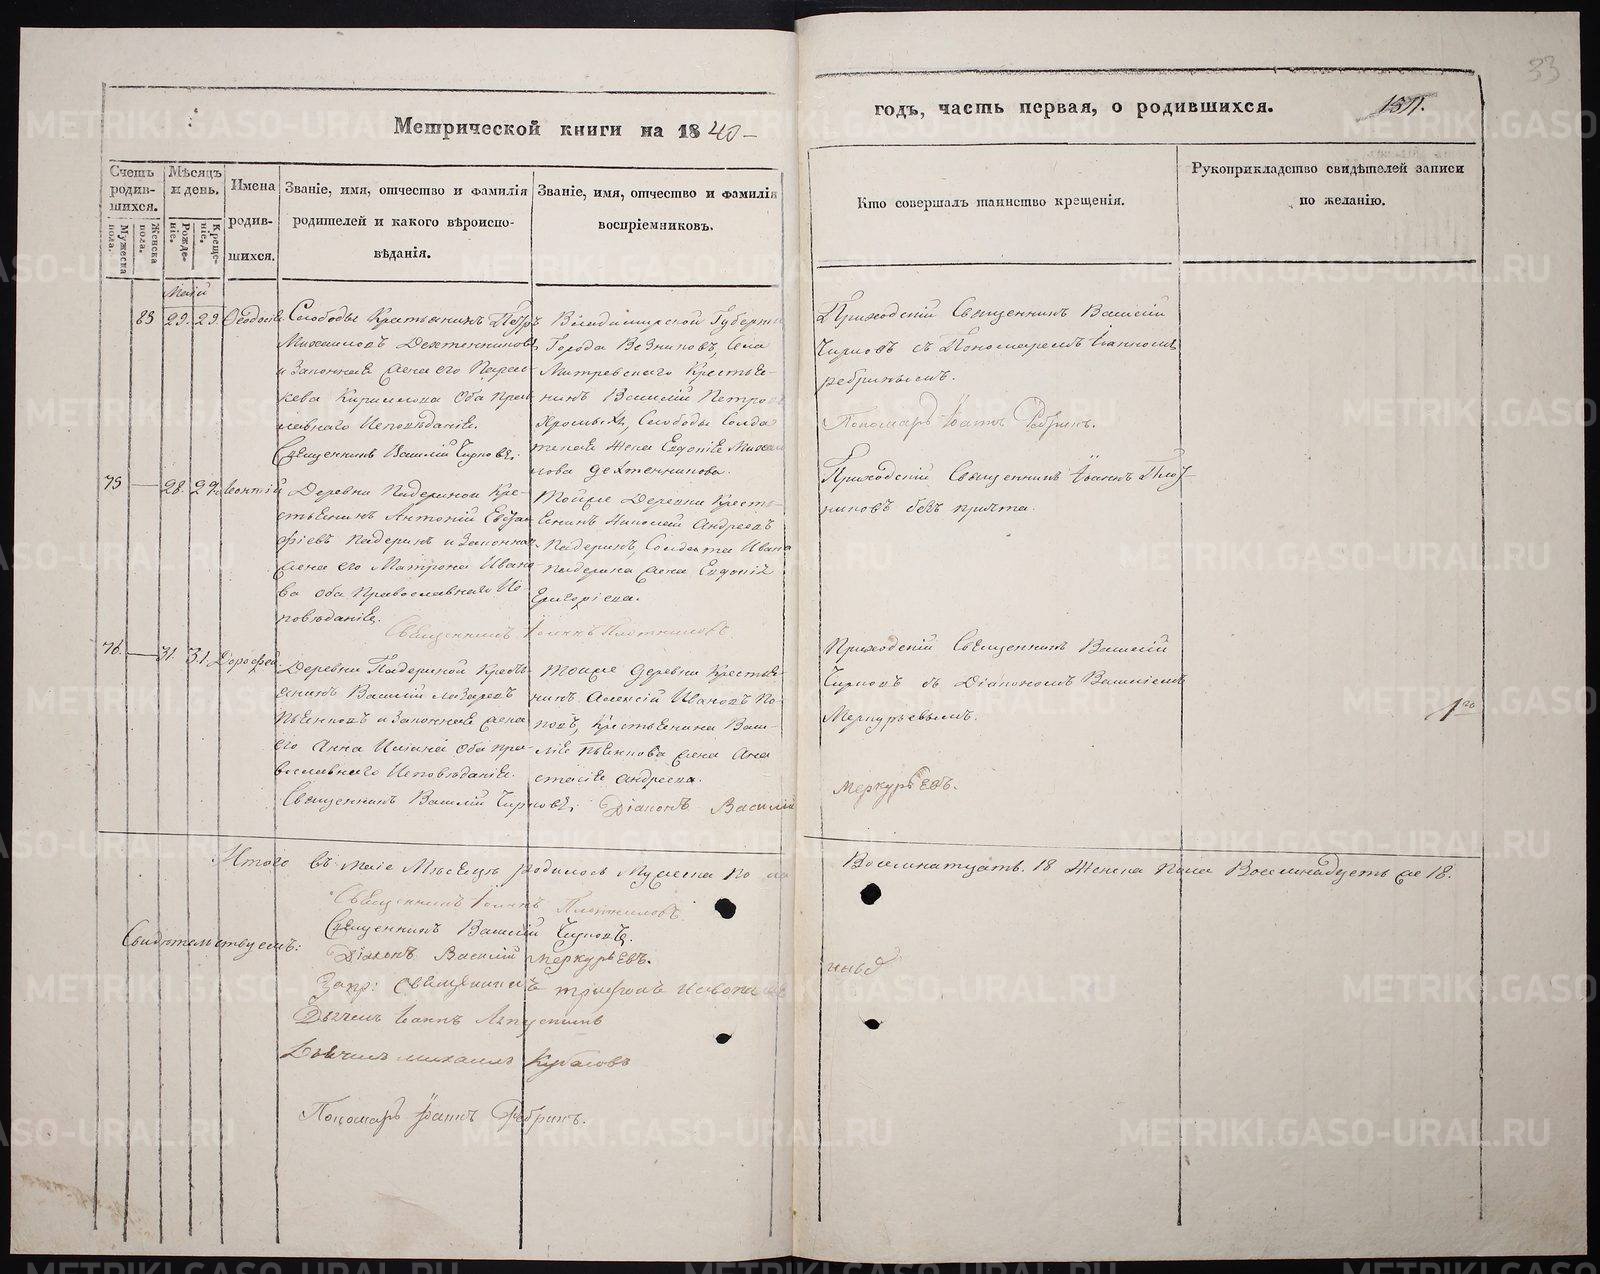 33
Метрической книги на 1840
годъ, часть первая, о родившихся.
Счетъ родившихся.
Мужеска пола.
Женска пола.
Мѣсяцъ и день.
Рожденіе.
Крещеніе.
Имена родившихся.
Званіе, имя, отчество и фамилія
родителей и какого вѣроиспо-
вѣданія.
Званіе, имя, отчество и фамилія
воспріемниковъ.
Кто совершалъ таинство крещенія.
Рукоприкладство свидѣтелей записи
по желанію.
Маій
83 29. 29.
Слободы Крестьянинъ Петръ
Михаиловъ
и Законная жена его Парас-
кева Кирилова оба Пра-
славнаго Исповѣданія.
Священникъ Василій Чирковъ.
Владимирской Губерн
Города Села
Крестья-
нинъ Василій Петров
Слободы Солда
жена Евдокія Михаи
лова
Приходскій Священникъ Василій
Чирковъ съ Пономаремъ Іоанномъ
ребринымъ.
Пономарь Іоаннъ Ребринъ.
75 28. 29. Леонтій
Деревни Падериной Кре-
стьянинъ Антоній Евгра-
фіевъ Падеринъ и Законная
жена его Матрона Ивано-
ва оба Православнаго Ис-
повѣданія.
Тойже Деревни Кресть-
янинъ Николай Андреевъ
Падеринъ, Солдата Ивана
Падерина жена Евдокія
Григоріева.
Священникъ Іоаннъ Плотниковъ.
Приходскій Священникъ Іоаннъ Плот-
никовъ безъ причта.
76. 31. 31. Дорофей
Деревни Падериной Кресть-
янинъ Василій Лазаревъ
Пьянковъ и Законная жена
его Анна оба пра-
вославнаго Исповѣданія.
Священникъ Василій Чирковъ.
Тойже Деревни Крестья-
нинъ Алексій Ивановъ По-
повъ, Крестьянина Васи-
лія Пьянкова жена Ана
стасія Андреева.
Діаконъ Василій
Меркурьевъ.
Приходскій Священникъ Василій
Чирковъ съ Діакономъ Василіемъ
Меркурьевымъ.
Итого въ Маіе Мѣсяцѣ родилось Мужеска По ла
Восемнатцать. 18 Женска Пола Восемнадцеть же 18.
Священникъ Іоаннъ Плотниковъ.
Свидѣтельствуемъ:
Священникъ Василій Чирковъ.
Діаконъ Василій Меркурьевъ.
Священникъ
Дьячекъ Іоаннъ
Дьячекъ Михаилъ
Пономарь Іоаннъ Ребринъ.
METRIKI.GASO-URAL.RU